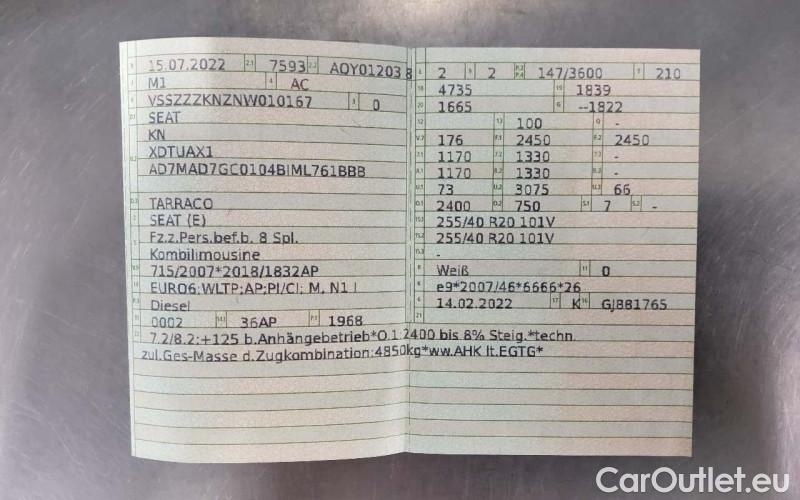 15.07.2022 2.1 7593 2.2 AQY01203 8
M1 4 AC
VSSZZZKNZNW010167 3 0
SEAT
KN
XDTUAX1
AD7MAD7GC0104BIML761BBB
TARRACO
SEAT (E)
Fz.z.Pers.bef.b. 8 Spl.
Kombilimousine
715/2007*2018/1832AP
EURO6;WLTP;AP;PI/CI; M, N1 I
Diesel
0002 36AP P.1 1968
7.2/8.2:+125 b.Anhängebetrieb*O.1:2400 bis 8% Steig.*techn.
zul.Ges-Masse d.Zugkombination:4850kg*ww.AHK lt.EGTG*
2 9 2 P.2 P.4 147/3600 T 210
18 4735 19 1839
20 1665 G --1822
12 13 100 Q -
V.7 176 F.1 2450 F.2 2450
7.1 1170 7.2 1330 7.3 -
8.1 1170 8.2 1330 8.3 -
U.1 73 U.2 3075 U.3 66
O.1 2400 O.2 750 S.1 7 S.2 -
15.1 255/40 R20 101V
15.2 255/40 R20 101V
15.3 -
R Weiß 11 0
K e9*2007/46*6666*26
6 14.02.2022 17 K 16 GJ881765
21
CarOutlet.eu